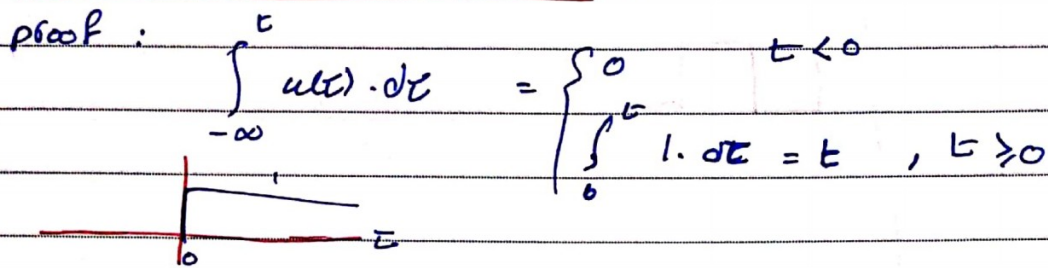 proof :
∫_{-∞}^{t} u(τ) . dτ = { 0 t < 0
∫_{0}^{t} 1. dτ = t , t ≥ 0
0 τ